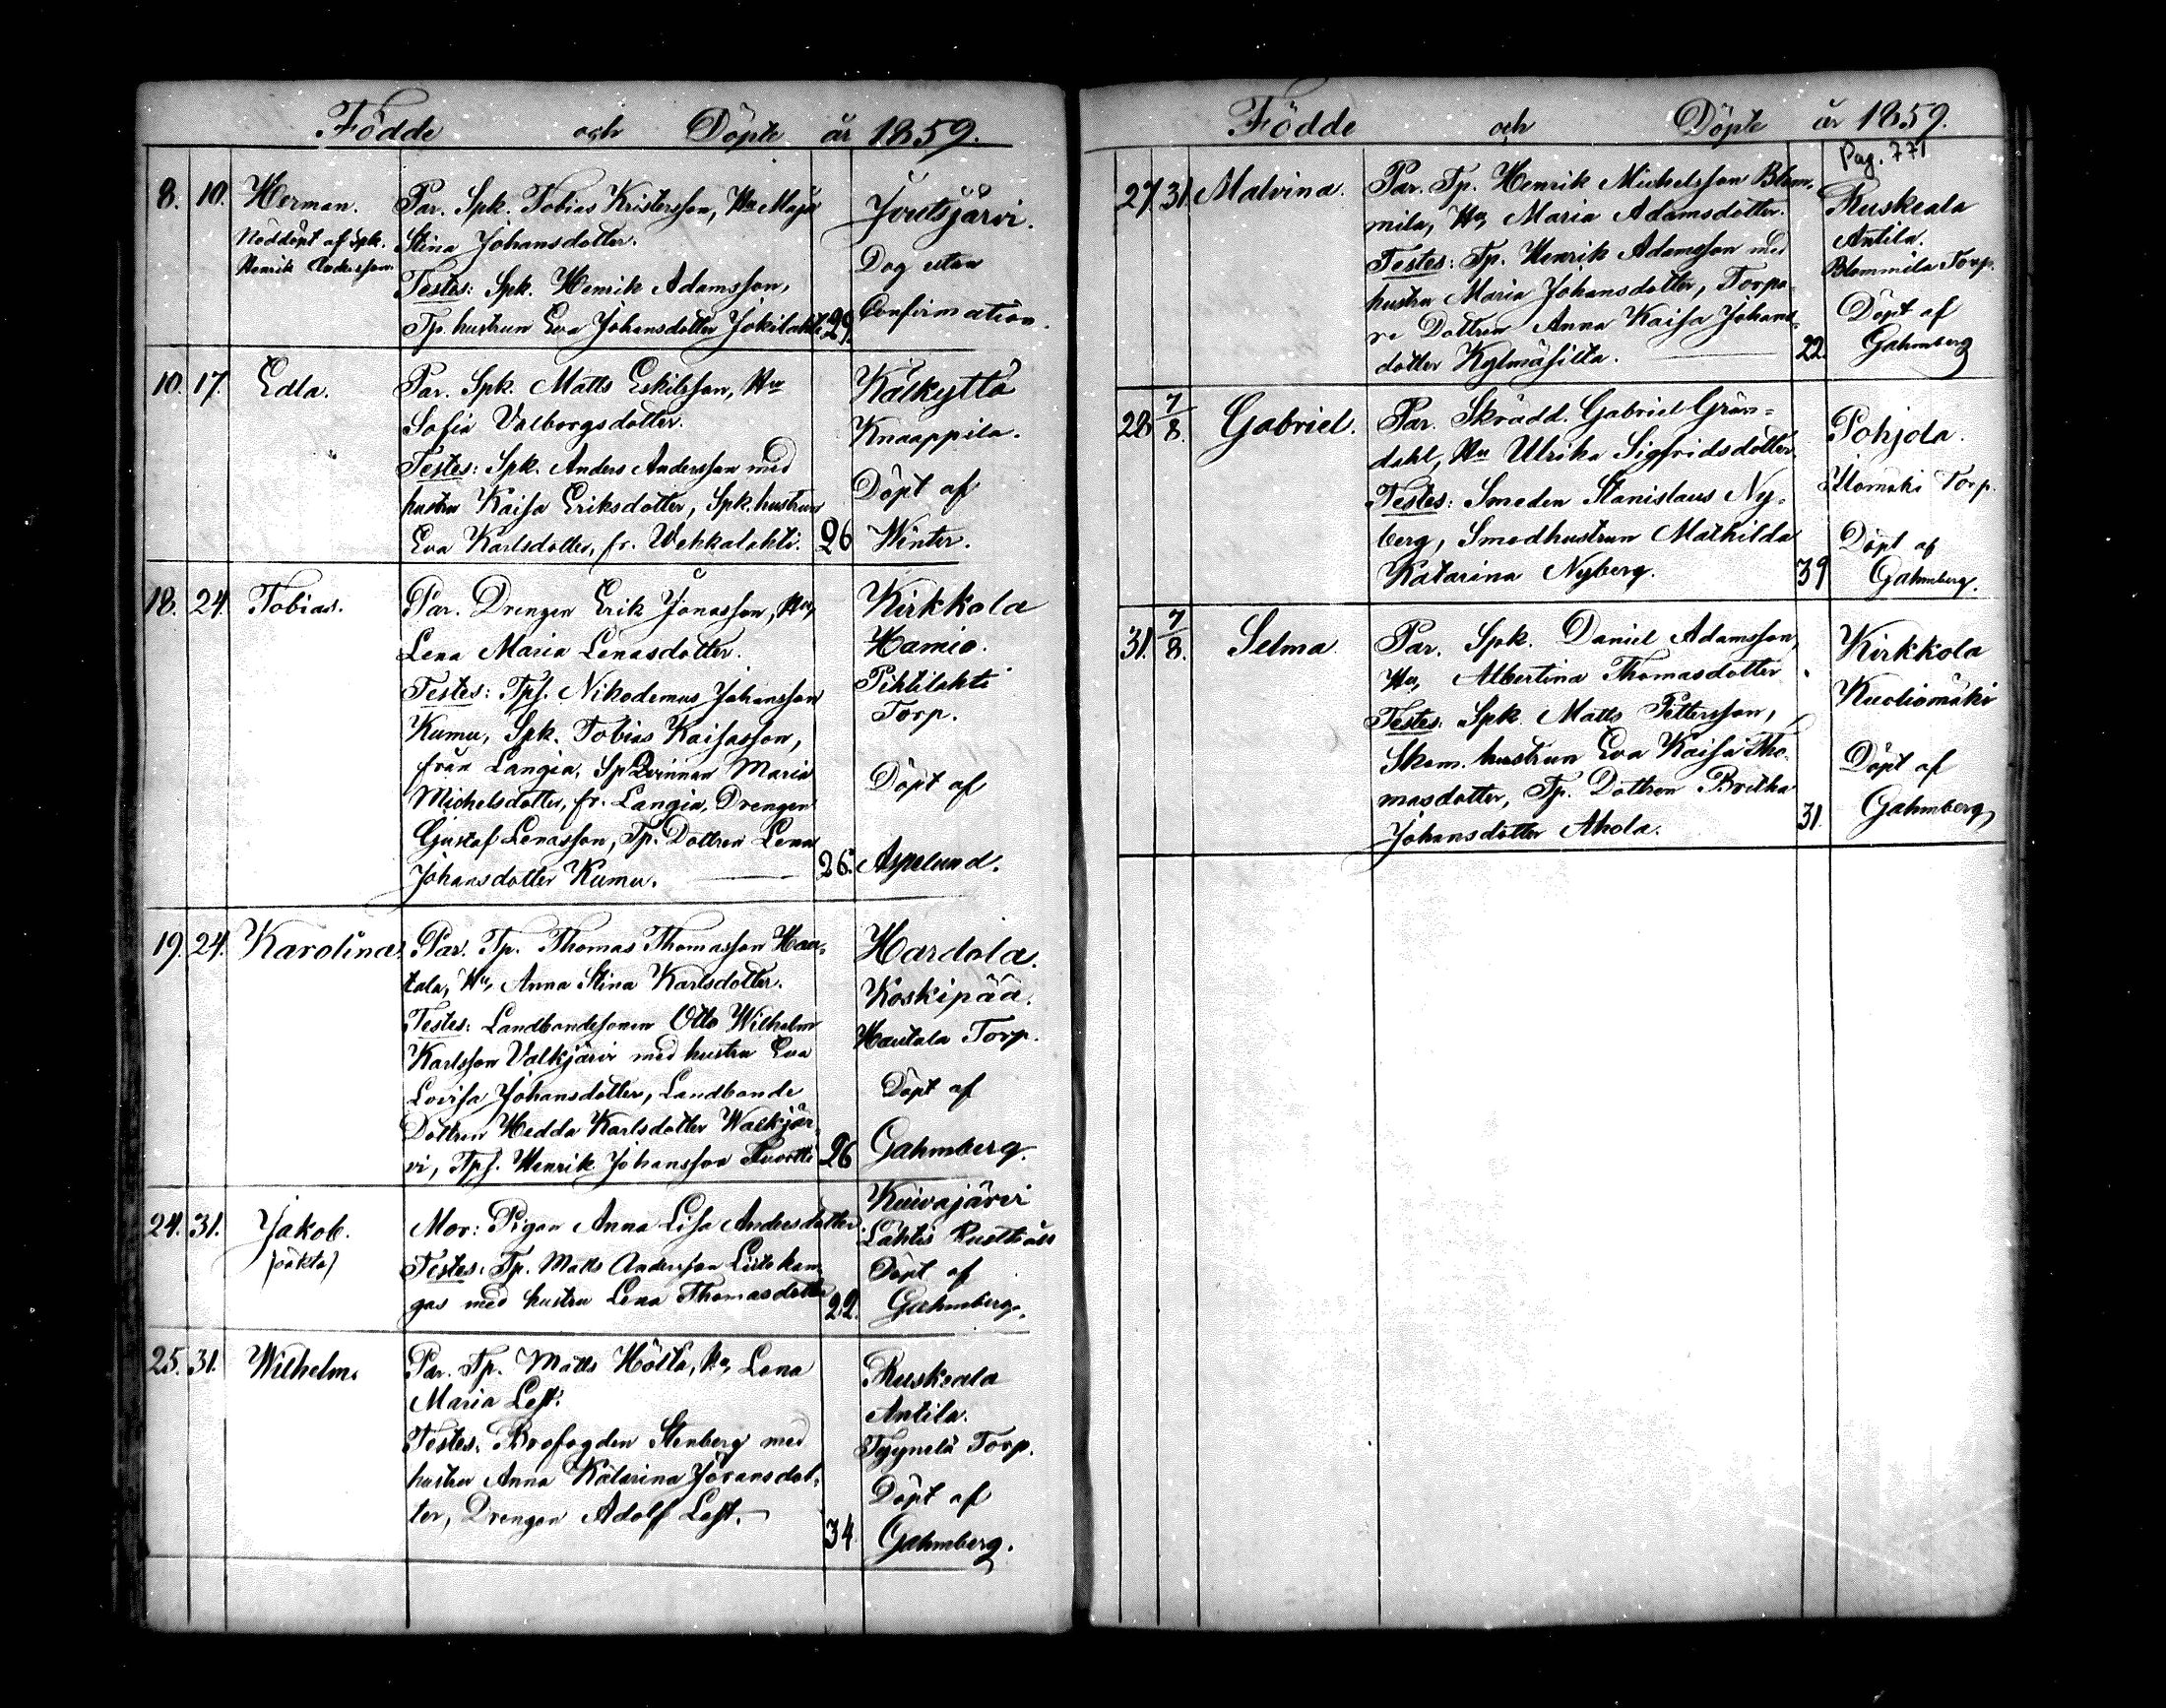 Födde och Döpte år 1859.
8. 10. Herman.
Nöddöpt af Spk.
Henrik Andersson.
Par. Spk. Tobias Kristersson, Hu Maja
Stina Johansdotter.
Testes: Spk. Henrik Adamsson,
Tp. hustrun Eva Johansdotter Jokilahti
29.
Joutsjärvi.
Dog utan
Confirmation.
10. 17. Edla.
Par. Spk. Matts Eskilsson, Hu
Sofia Valborgsdotter.
Testes: Spk. Anders Andersson med
hustru Kaisa Eriksdotter, Spk. hustrun
Eva Karlsdotter, fr. Wehkalahti.
26
Kälkyttä
Knaappila.
Döpt af
Winter.
18. 24. Tobias.
Par. Drengen Erik Jonasson, Hu,
Lena Maria Lenasdotter.
Testes: Tpf. Nikodemus Johansson
Kumu, Spk. Tobias Kaisasson,
från Langia, Sp Qvinnan Maria
Michelsdotter, fr. Langia, Drengen
Gustaf Lenasson, Tp. Dottren Lena
Johansdotter Kumu.
26.
Kirkkola
Hamio.
Pihtilahti
Torp.
Döpt af
Aspelund.
19. 24. Karolina.
Par. Tp. Thomas Thomasson Hau-
tala, Hu, Anna Stina Karlsdotter.
Testes: Landbondesonen Otto Wilhelm
Karlsson Valkjärvi med hustru Eva
Lovisa Johansdotter, Landbonde
Dottren Hedda Karlsdotter Walkjär-
vi, Tpf. Henrik Johansson
26
Hardola.
Koskipää.
Hautala Torp.
Döpt af
Gahmberg.
24. 31. Jakob.
(oäkta)
Mor: Pigan Anna Lisa Andersdotter.
Testes: Tp. Matts Andersson Liitokan-
gas med hustru Lena Thomasdotter
22.
Kuivajärvi
Lahtis Rusthåll
Döpt af
Gahmberg.
25. 31. Wilhelm.
Par. Tp. Matts Höltä, Hu, Lena
Maria Löf.
Testes: Brofogden Stenberg med
hustru Anna Katarina Göransdot-
ter, Drengen Adolf Löf.
34
Ruskeala
Antila.
Tyynelä Torp.
Döpt af
Gahmberg.
Födde och Döpte år 1859.
Pag. 771
27 31. Malvina.
Par. Tp. Henrik Michelsson Blom-
mila, Hu, Maria Adamsdotter.
Testes: Tp. Henrik Adamsson med
hustru Maria Johansdotter, Torpa-
re Dottren Anna Kaisa Johans-
dotter Kylmäsilta.
22.
Ruskeala
Antila.
Blommila Torp.
Döpt af
Gahmberg
28 7/8. Gabriel.
Par. Skrädd. Gabriel Grön-
dahl, Hu Ulrika Sigfridsdotter
Testes: Smeden Stanislaus Ny-
berg, Smedhustrun Mathilda
Katarina Nyberg.
39
Pohjola.
Ilomäki Torp.
Döpt af
Gahmberg.
31. 7/8. Selma
Par. Spk. Daniel Adamsson,
Hu, Albertina Thomasdotter
Testes: Spk. Matts Pettersson,
Skom. hustrun Eva Kaisa Tho-
masdotter, Tp. Dottren Britha
Johansdotter Ahola.
31.
Kirkkola
Kuoliomäki
Döpt af
Gahmberg